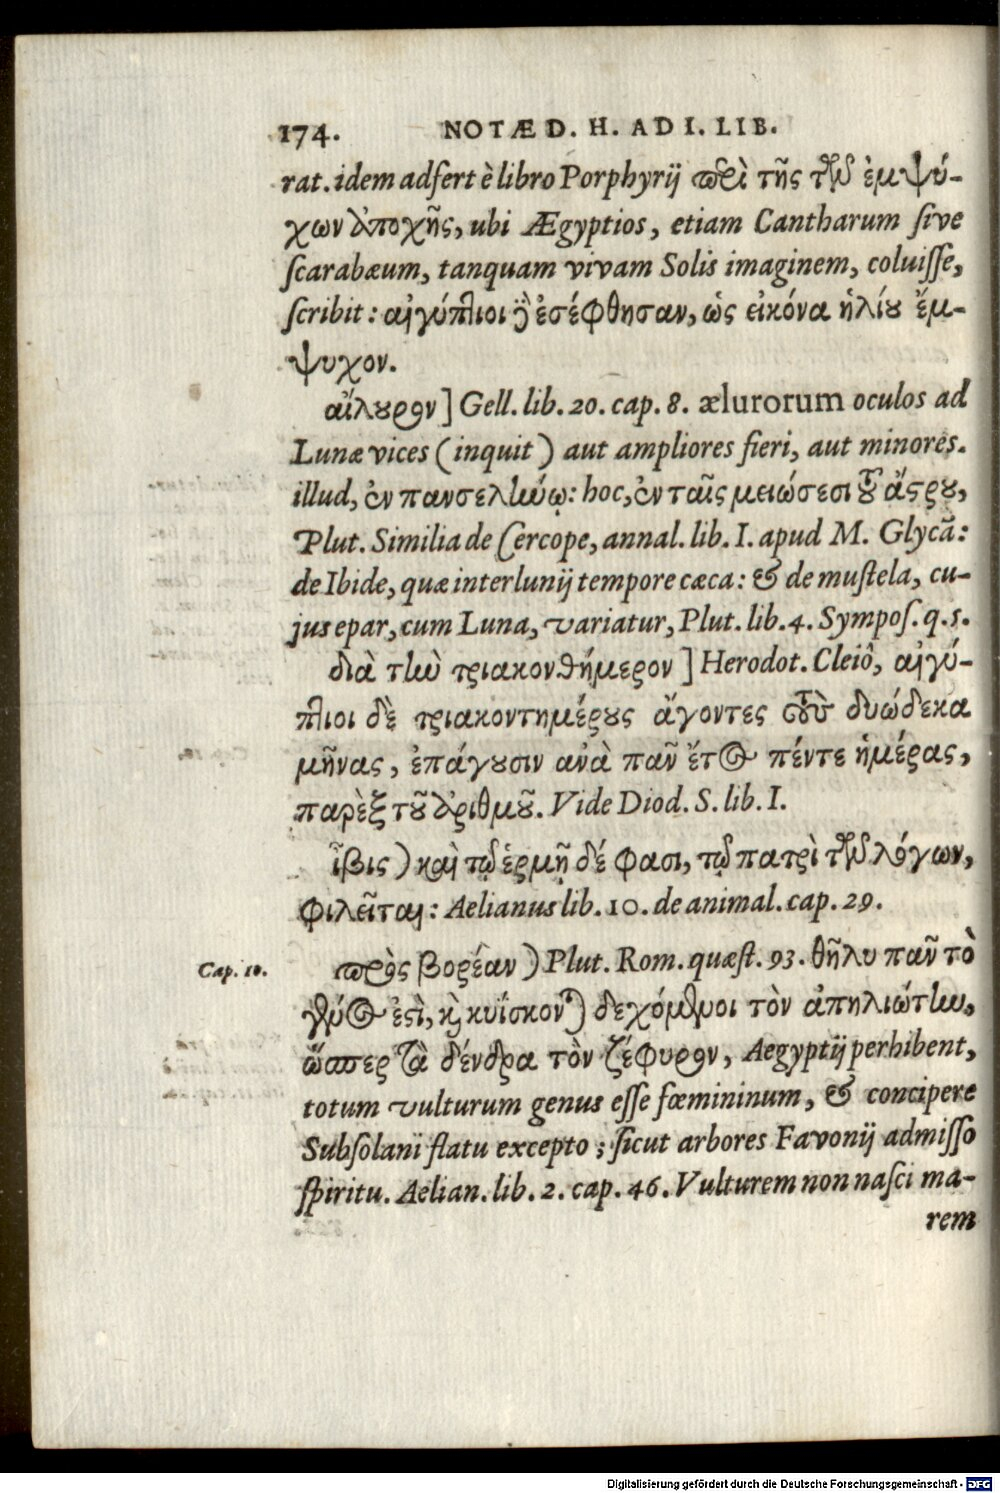 174. NOTÆ D. H. AD I. LIB.
rat. idem adfert è libro Porphyrij περὶ τῆς τῶν ἐμψύ-
χων ἀποχῆς, ubi Ægyptios, etiam Cantharum ſive
ſcarabæum, tanquam vivam Solis imaginem, coluiſſe,
ſcribit: αἰγύπτιοι δὲ ἐσέφθησαν, ὡς εἰκόνα ἡλίου ἔμ-
ψυχον.
αἴλουρον] Gell. lib. 20. cap. 8. ælurorum oculos ad
Lunæ vices (inquit) aut ampliores fieri, aut minores.
illud, ἐν πανσελήνῳ: hoc, ἐν ταῖς μειώσεσι τοῦ ἄστρου,
Plut. Similia de Cercope, annal. lib. I. apud M. Glycã:
de Ibide, quæ interlunij tempore cæca: & de muſtela, cu-
jus epar, cum Luna, variatur, Plut. lib. 4. Sympoſ. q. 5.
διὰ τὴν τριακονθήμερον] Herodot. Cleiô, αἰγύ-
πτιοι δὲ τριακοντημέρους ἄγοντες τοὺς δυώδεκα
μῆνας, ἐπάγουσιν ἀνὰ πᾶν ἔτος πέντε ἡμέρας,
παρὲξ τοῦ ἀριθμοῦ. Vide Diod. S. lib. I.
ἶβις) καὶ τῷ ἑρμῇ δέ φασι, τῷ πατρὶ τῶν λόγων,
φιλεῖται: Aelianus lib. 10. de animal. cap. 29.
Cap. 10.
πρὸς βορέαν) Plut. Rom. quæſt. 93. θῆλυ πᾶν τὸ
γένος ἐστὶ, καὶ κυΐσκονται δεχόμενοι τὸν ἀπηλιώτην,
ὥσπερ τὰ δένδρα τὸν ζέφυρον, Aegyptij perhibent,
totum vulturum genus eſſe fœmininum, & concipere
Subſolani flatu excepto; ſicut arbores Favonij admiſſo
ſpiritu. Aelian. lib. 2. cap. 46. Vulturem non naſci ma-
rem
Digitalisierung gefördert durch die Deutsche Forschungsgemeinschaft - DFG